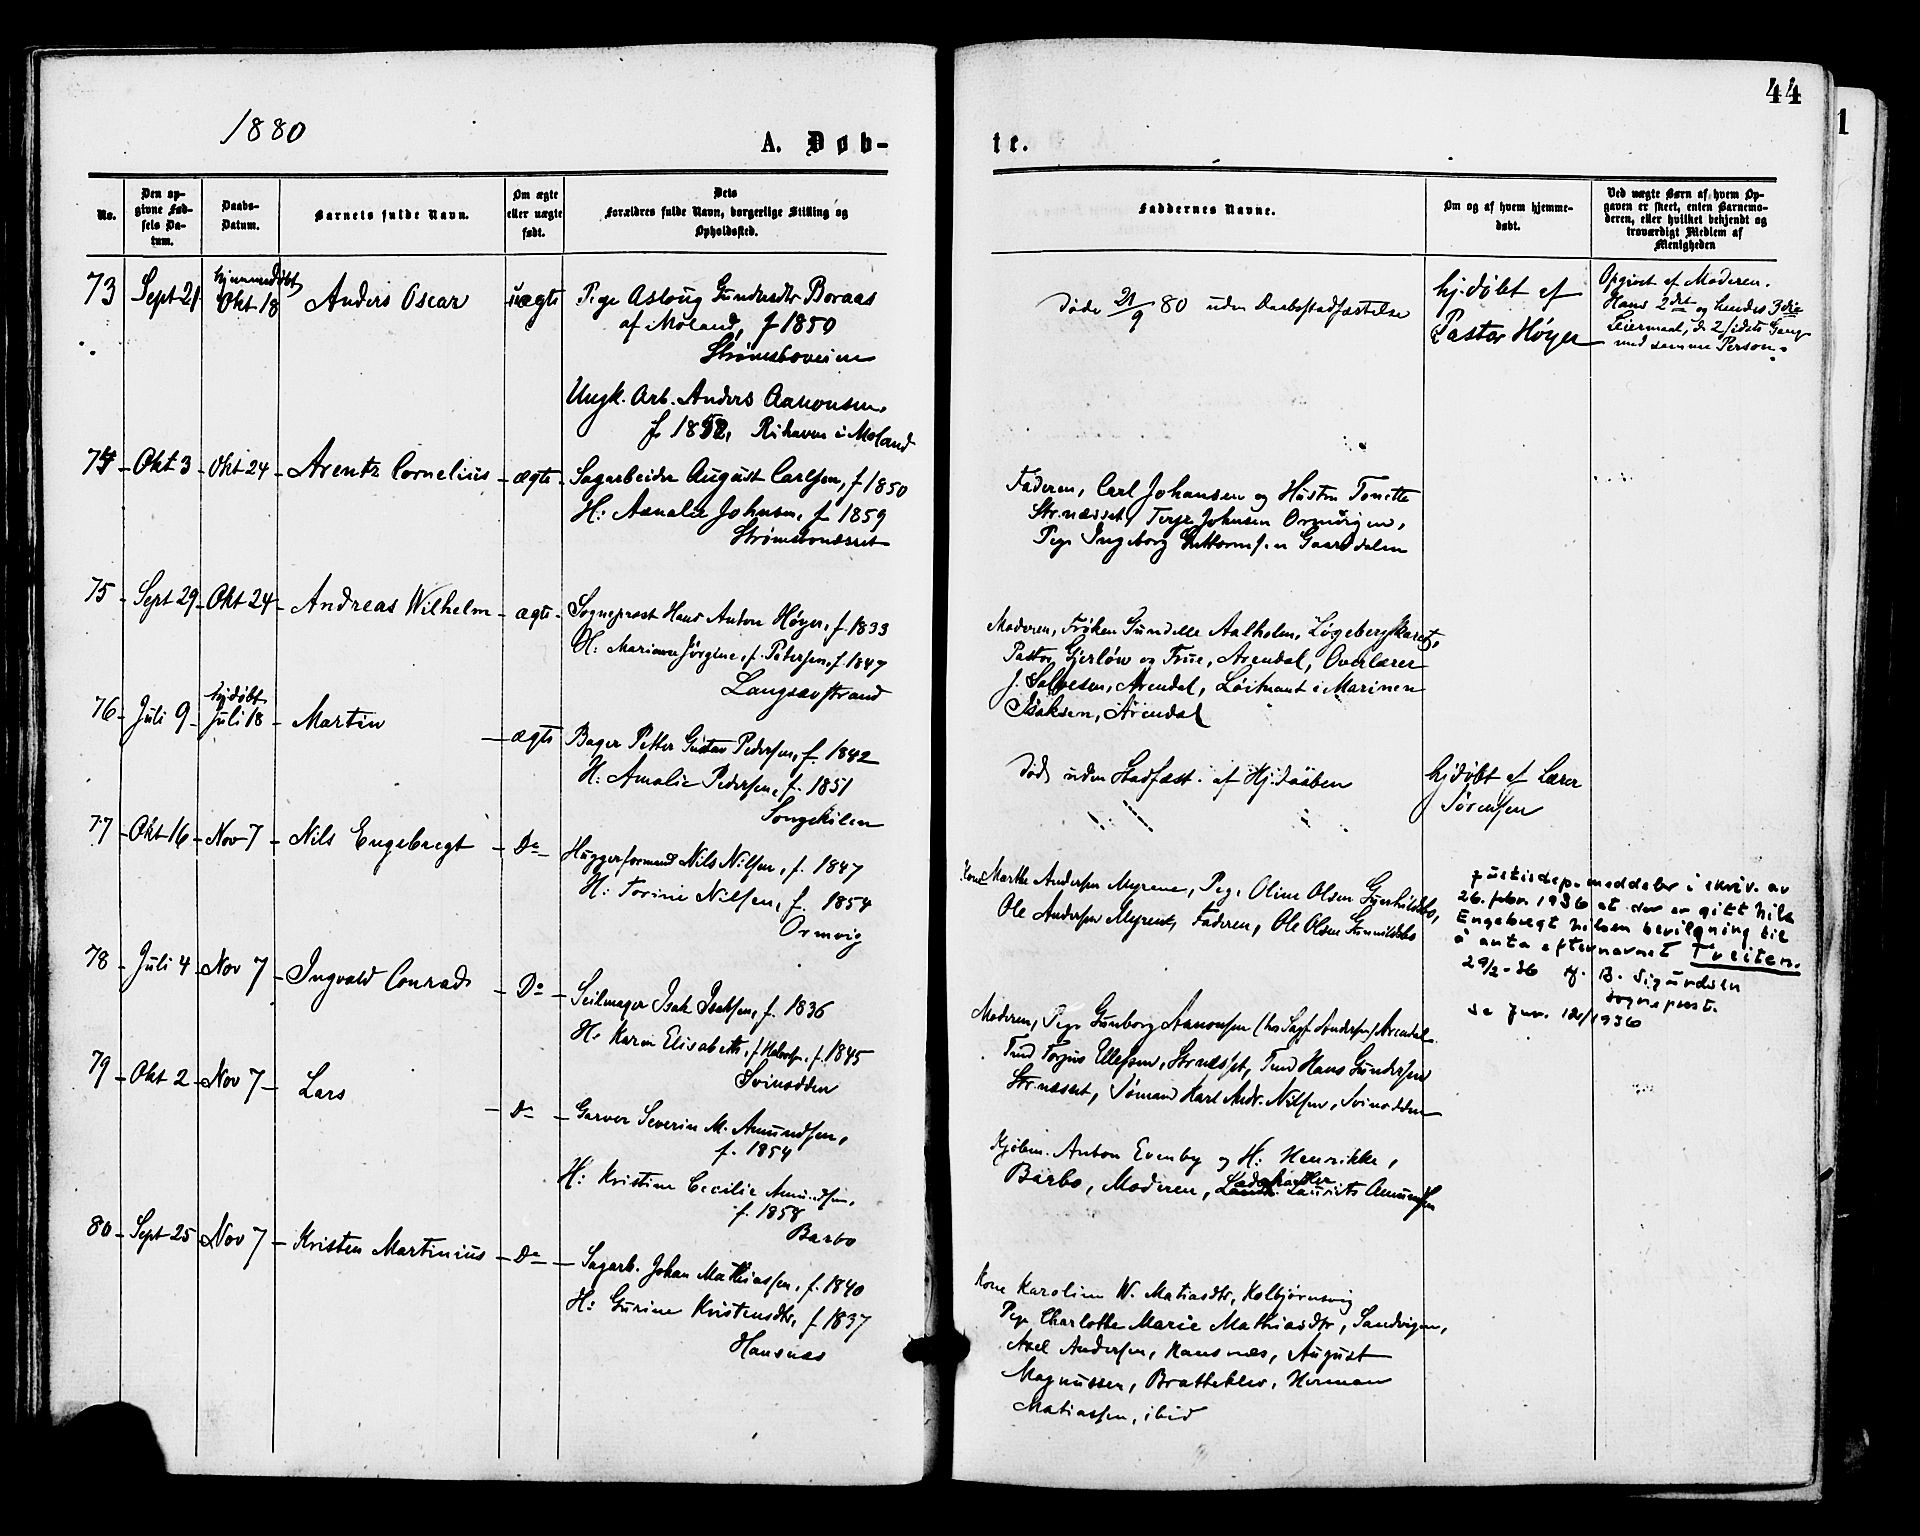 44
1
1880
A. Døb-
te.
No.
Den op-
givne Fød-
sels Da-
tum.
Daabs-
Datum.
Barnets fulde Navn.
Om ægte
eller uægte
født.
Dets
Forældres fulde Navn, borgerlige Stilling og
Opholdssted.
Faddernes Navne.
Om og af hvem hjemme-
døbt.
Ved uægte Børn af hvem Op-
gaven er skeet, enten Barnemo-
deren, eller hvilket bekjendt og
troværdigt Medlem af
Menigheden
73 Sept 21 hjemmedøbt Okt 18 Anders Oscar uægte
Pige Asloug Gundersdtr Boraas
af Moland, f 1850
Strømsboveien
Ungk. Arb. Anders Aanonsen,
f. 1852, Rihaven i Moland
døde 21/9 80 uden Daabsstadfæstelse
hj.døbt af
Pastor Höyer
Opgivet af Moderen.
Hans 2det og hendes 3die
Leiermaal, de 2 sidste Gang
med samme Person.
74 Okt 3 Okt 24 Arentz Cornelius ægte
Sagarbeider August Carlsen, f 1850
H: Aanalie Johnsen, f 1859
Strømsbonæsset
Faderen, Carl Johansen og Hustru Tonette
Str.næsset, Terje Johnsen Ormvigen,
Pige Ingeborg Guttormsen Gaardalen
75 Sept 29 Okt 24 Andreas Wilhelm ægte
Sogneprest Hans Anton Høyer, f. 1833
H: Mariane Jörgine, f. Petersen, f. 1847
Langsævstrand
Moderen, Frøken Gundelle Aalholm, Løgebergskaret,
Pastor Gjerløw og Frue, Arendal, Overlærer
J. Salvesen, Arendal, Løitnant i Marinen
Isaksen, Arendal
76 Juli 9 hjdøbt Juli 18 Martin ægte
Bager Petter Gustav Pedersen, f. 1842
H: Amalie Pedersen, f. 1851
Songekilen
død uden Stadfæst. af Hj.daaben
hjdøbt af Lærer
Sørensen
77 Okt 16 Nov 7 Nils Engebregt Do
Huggerformand Nils Nilsen, f. 1847
H: Torine Nilsen, f. 1854
Ormvig
Kone Marthe Andersen Myrene, Pige Oline Olsen
Ole Andersen Myrene, Faderen, Ole Olsen
Justisdep. meddeler i skriv. av
26. febr. 1936 at der er gitt Nils
Engebregt Nilsen bevilgning til
å anta efternavnet Tveiten.
29/2-36 B. Sigurdsen
sogneprest.
se Jnr. 121/1936
78 Juli 4 Nov 7 Ingvald Conrad Do
Seilmager Isak Isaksen, f. 1836
H: Karen Elisabeth, f. Halvorsen, f. 1845
Svinodden
Moderen, Pige Gunborg Aanonsen (hos Sagf. Andersen) Arendal
Tmd Torjus Ellefsen, Strnæsset, Tmd Hans Gundersen
Strnæsset, Sømand Karl Andr. Nilsen, Svinodden
79 Okt 2 Nov 7 Lars Do
Garver Severin M. Amundsen,
f. 1854
H: Kristine Cecilie Amundsen,
f. 1858
Barbo
Kjøbm. Anton Evenby og H: Henrikke,
Barbo, Moderen, Laurits Amundsen
80 Sept 25 Nov 7 Kristen Martinius Do
Sagarb. Johan Mathiassen, f. 1840
H: Gurine Kristensdtr, f 1837
Hansnæs
Kone Karoline W. Matiasdtr, Kolbjørnsvig
Pige Charlotte Marie Mathiasdtr, Sandvigen,
Axel Andersen, Hansnæs, August
Magnussen, Bratteklev, Herman
Matiassen, ibid